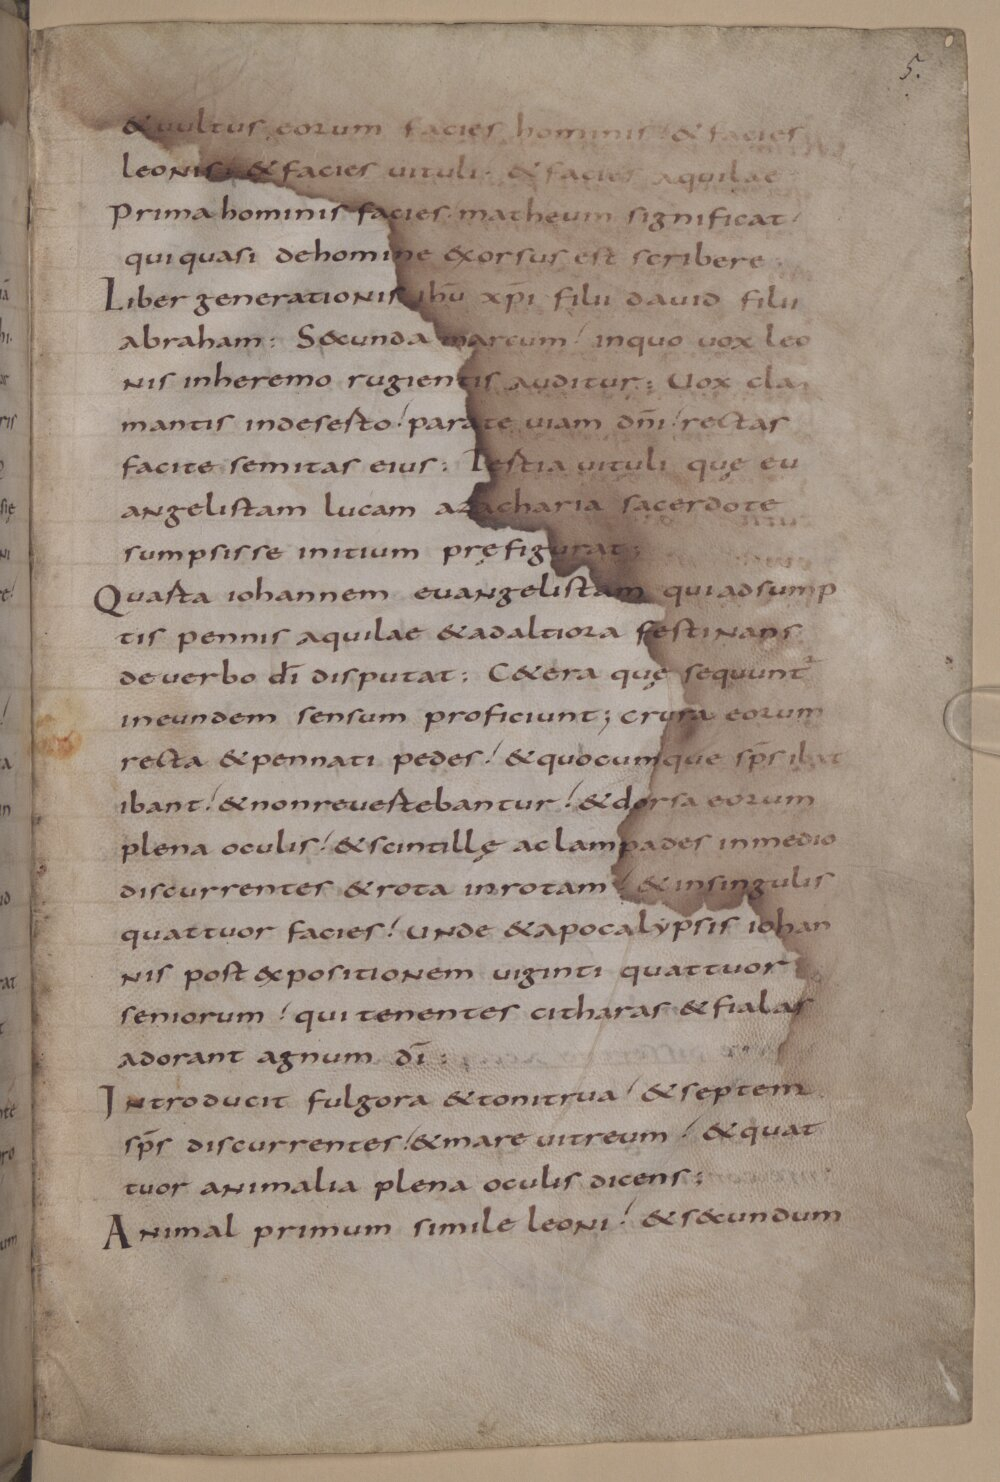 5.
& uultus eorum facies hominis & facies
leonis & facies uituli & facies aquilae
Prima hominis facies matheum significat
qui quasi dehomine exorsus est scribere
Liber generationis ihū xp̄i filii dauid filii
abraham: Secunda marcum inquo uox leo
nis inheremo rugientis auditur: Uox cla
mantis indeserto parate uiam dn̄i rectas
facite semitas eius: Tertia uituli quę eu
angelistam lucam azacharia sacerdote
sumpsisse initium pręfigurat;
Quarta iohannem euangelistam qui adsump
tis pennis aquilae & adaltiora festinans
deuerbo dī disputat: C&era quę sequunt
ineundem sensum proficiunt; crura eorum
recta & pennati pedes & quocumque sp̄s ibat
ibant & nonreuertebantur & dorsa eorum
plena oculis & scintillę aclampades inmedio
discurrentes & rota inrotam & insingulis
quattuor facies Unde & apocalypsis iohan
nis post expositionem uiginti quattuor
seniorum qui tenentes citharas & fialas
adorant agnum dī:
Introducit fulgora & tonitrua & septem
sp̄s discurrentes & mare uitreum & quat
tuor animalia plena oculis dicens:
Animal primum simile leoni & secundum